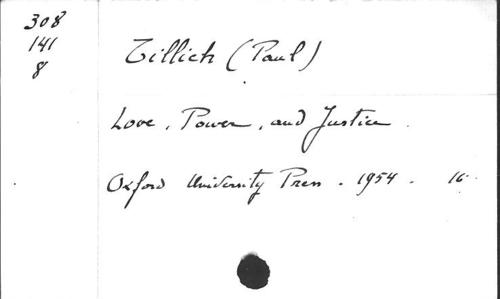 308
141
8
Tillich (Paul)
Love, Power, and Justice.
Oxford University Press. 1954. 16